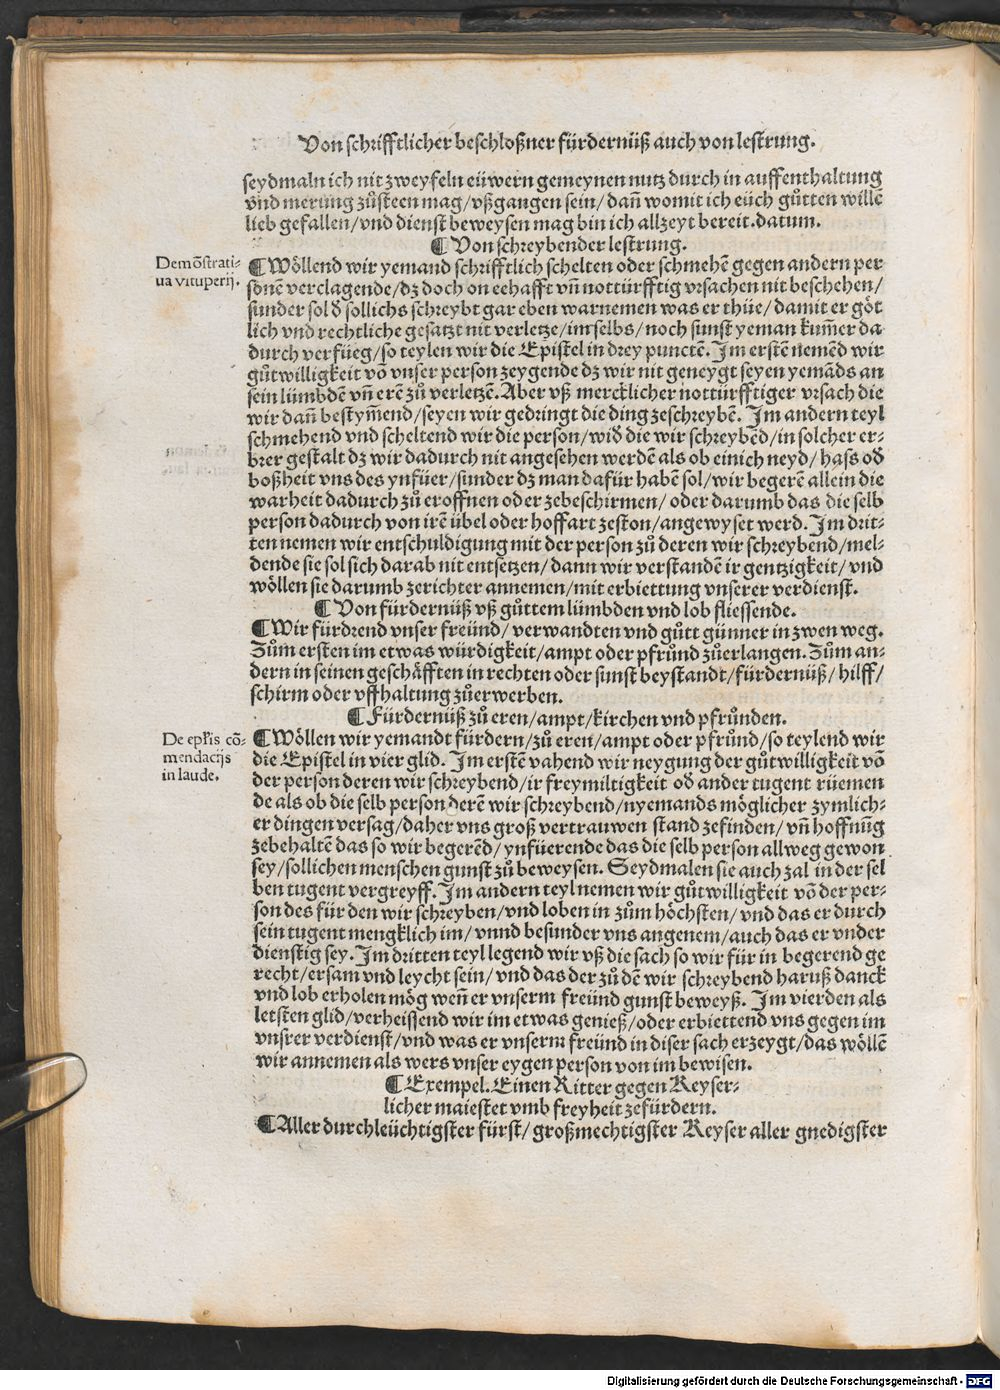 Von schrifftlicher beschloßner fürdernüß auch von lestrung.
seydmaln ich nit zweyfeln eüwern gemeynen nutz durch in auffenthaltung
vnd merung zůsteen mag/vßgangen sein/dañ womit ich eüch gůtten willẽ
lieb gefallen/vnd dienst beweysen mag bin ich allzeyt bereit.datum.
¶ Von schreybender lestrung.
Demõstrati-
ua vituperij.
¶Wöllend wir yemand schrifftlich schelten oder schmehẽ gegen andern per
sonẽ verclagende/dz doch on eehafft vñ notturfftig vrsachen nit beschehen/
sunder sol ð sollichs schreybt gar eben warnemen was er thüe/damit er göt
lich vnd rechtliche gesatzt nit verletze/im selbs/noch sunst yeman kum̃er da
durch verfüeg/so teylen wir die Epistel in drey punctẽ. Im erstẽ nemẽd wir
gůtwilligkeit võ vnser person zeygende dz wir nit geneygt seyen yemãds an
sein lümbdẽ vñ erẽ zů verletzẽ. Aber vß mercklicher notturfftiger vrsach die
wir dañ bestym̃end/seyen wir gedringt die ding zeschreybẽ. Im andern teyl
schmehend vnd scheltend wir die person/wið die wir schreybẽd/in solcher er-
brer gestalt dz wir dadurch nit angesehen werdẽ als ob einich neyd/hass oð
boßheit vns des ynfüer/sunder dz man dafür habẽ sol/wir begerẽ allein die
warheit dadurch zů eroffnen oder zebeschirmen/oder darumb das die selb
person dadurch von irẽ übel oder hoffart zeston/angewyset werd. Im drit-
ten nemen wir entschuldigung mit der person zů deren wir schreybend/mel-
dende sie sol sich darab nit entsetzen/dann wir verstandẽ ir gentzigkeit/vnd
wöllen sie darumb zerichter annemen/mit erbiettung vnserer verdienst.
¶ Von fürdernüß vß gůttem lümbden vnd lob fliessende.
¶Wir fürdrend vnser freünd/verwandten vnd gůtt günner in zwen weg.
Zům ersten im etwas würdigkeit/ampt oder pfrůnd zůerlangen. Zům an-
dern in seinen geschäfften in rechten oder sunst beystandt/fürdernüß/hilff/
schirm oder vffhaltung zůerwerben.
¶ Fürdernüß zů eren/ampt/kirchen vnd pfrůnden.
De epl̃is cõ-
mendacijs
in laude.
¶Wöllen wir yemandt fürdern/zů eren/ampt oder pfrůnd/so teylend wir
die Epistel in vier glid. Im erstẽ vahend wir neygung der gůtwilligkeit võ
der person deren wir schreybend/ir freymiltigkeit oð ander tugent rüemen
de als ob die selb person derẽ wir schreybend/nyemands möglicher zymlich-
er dingen versag/daher vns groß vertrauwen stand zefinden/vñ hoffnũg
zebehaltẽ das so wir begerẽd/ynfüerende das die selb person allweg gewon
sey/sollichen menschen gunst zů beweysen. Seydmalen sie auch zal in der sel
ben tugent vergreyff. Im andern teyl nemen wir gůtwilligkeit võ der per-
son des für den wir schreyben/vnd loben in zům höchsten/vnd das er durch
sein tugent mengklich im/vnnd besunder vns angenem/auch das er vnder
dienstig sey. Im dritten teyl legend wir vß die sach so wir für in begerend ge
recht/ersam vnd leycht sein/vnd das der zů dẽ wir schreybend haruß danck
vnd lob erholen mög weñ er vnserm freünd gunst beweyß. Im vierden als
letsten glid/verheissend wir im etwas genieß/oder erbiettend vns gegen im
vnsrer verdienst/vnd was er vnserm freünd in diser sach erzeygt/das wöllẽ
wir annemen als wers vnser eygen person von im bewisen.
¶ Exempel. Einen Ritter gegen Keyser-
licher maiestet vmb freyheit zefürdern.
¶Aller durchleüchtigster fürst/großmechtigster Keyser aller gnedigster
Digitalisierung gefördert durch die Deutsche Forschungsgemeinschaft - DFG